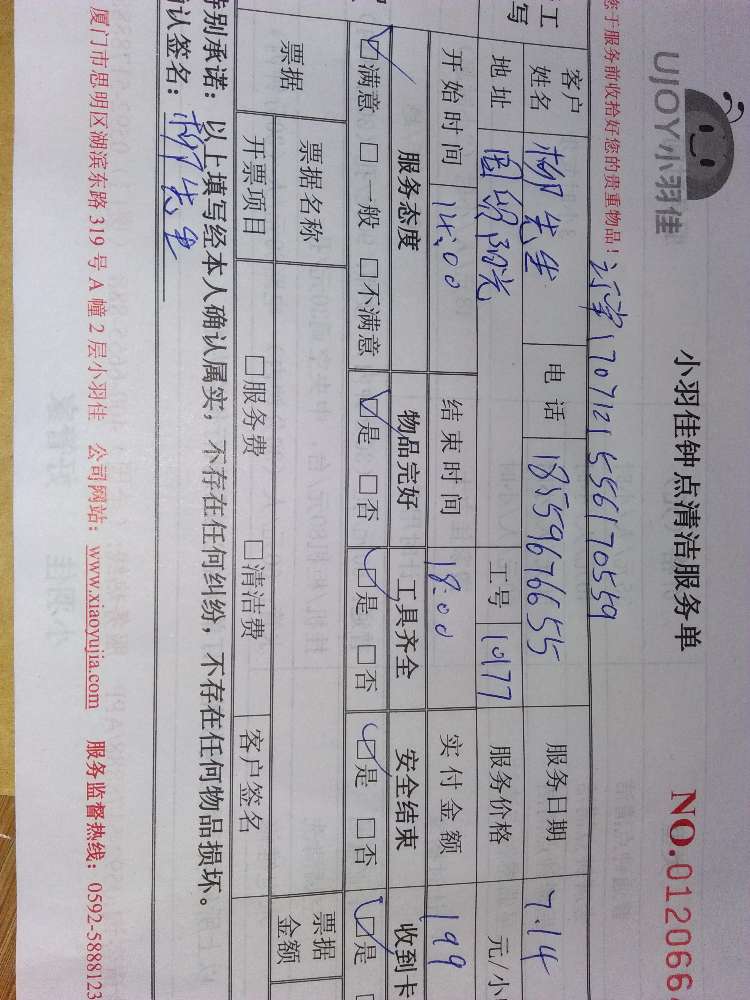 UJOY小羽佳
小羽佳钟点清洁服务单
NO.012066
您于服务前收拾好您的贵重物品！
1707121556170559
工 客户姓名 柳先生 电话 18559676655 服务日期 7.14
写 地址 国贸阳光 工号 1977 服务价格 元/小
开始时间 14:00 结束时间 18:00 实付金额 199
服务态度 物品完好 工具齐全 安全结束 收到卡
☑满意 □一般 □不满意 ☑是 □否 ☑是 □否 ☑是 □否 ☑是
票据 票据名称 票据金额
开票项目 □服务费 □清洁费 客户签名
特别承诺：以上填写经本人确认属实，不存在任何纠纷，不存在任何物品损坏。
确认签名：柳先生
厦门市思明区湖滨东路 319 号 A 幢 2 层小羽佳 公司网站：www.xiaoyujia.com 服务监督热线：0592-5888123